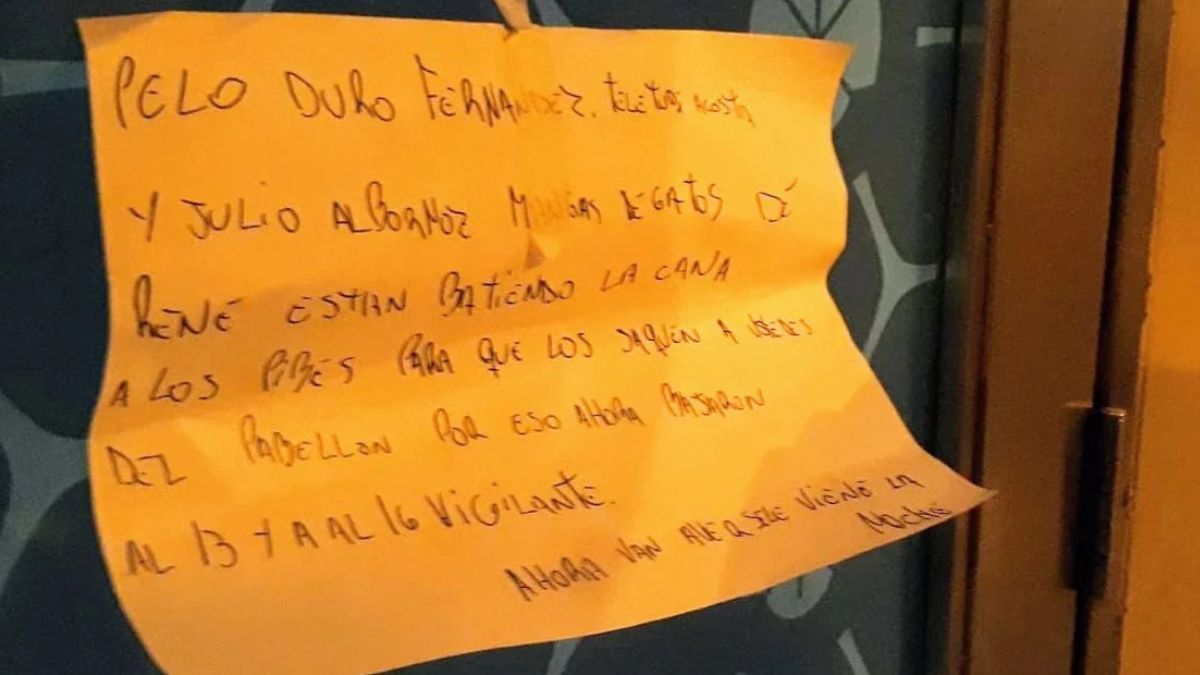 PELO DURO FERNANDEZ. TELETUBI ACOSTA
Y JULIO ALBORNOZ MANGAS DE GATOS DE
RENÉ ESTAN BATIENDO LA CANA
A LOS PIBES PARA QUE LOS SAQUEN A USEDES
DEL PABELLON POR ESO AHORA BAJARON
AL 13 Y A AL 16 VIGILANTE.
AHORA VAN AVER Q SELE VIENE LA
NOCHE